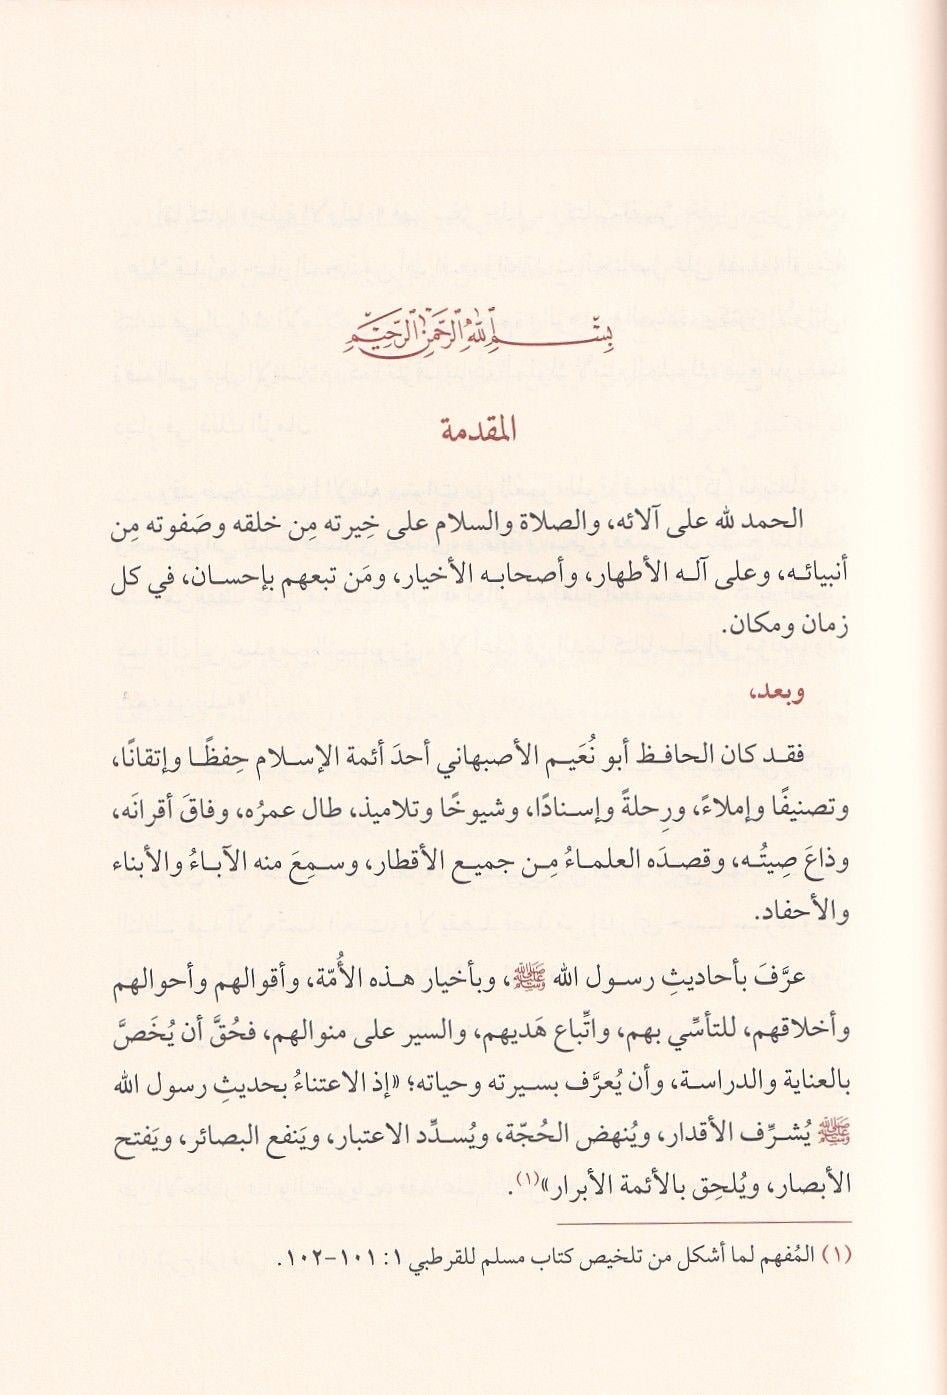 بِسْمِ اللهِ الرَّحْمٰنِ الرَّحِيْمِ
المقدمة
الحمد لله على آلائه، والصلاة والسلام على خِيرته مِن خلقه وصَفوته مِن
أنبيائه، وعلى آله الأطهار، وأصحابه الأخيار، ومَن تبعهم بإحسان، في كل
زمان ومكان.
وبعد،
فقد كان الحافظ أبو نُعَيم الأصبهاني أحدَ أئمة الإسلام حِفظًا وإتقانًا،
وتصنيفًا وإملاءً، ورِحلةً وإسنادًا، وشيوخًا وتلاميذ، طال عمرُه، وفاقَ أقرانَه،
وذاعَ صِيتُه، وقصدَه العلماءُ مِن جميع الأقطار، وسمِعَ منه الآباءُ والأبناء
والأحفاد.
عرَّفَ بأحاديثِ رسول الله ﷺ، وبأخيار هذه الأُمّة، وأقوالهم وأحوالهم
وأخلاقهم، للتأسِّي بهم، واتِّباع هَديهم، والسير على منوالهم، فحُقَّ أن يُخَصَّ
بالعناية والدراسة، وأن يُعرَّف بسيرته وحياته؛ «إذ الاعتناءُ بحديثِ رسول الله
ﷺ يُشرِّف الأقدار، ويُنهض الحُجّة، ويُسدِّد الاعتبار، ويَنفع البصائر، ويَفتح
الأبصار، ويُلحِق بالأئمة الأبرار»(١).
(١) المُفهم لما أشكل من تلخيص كتاب مسلم للقرطبي ١: ١٠١-١٠٢.